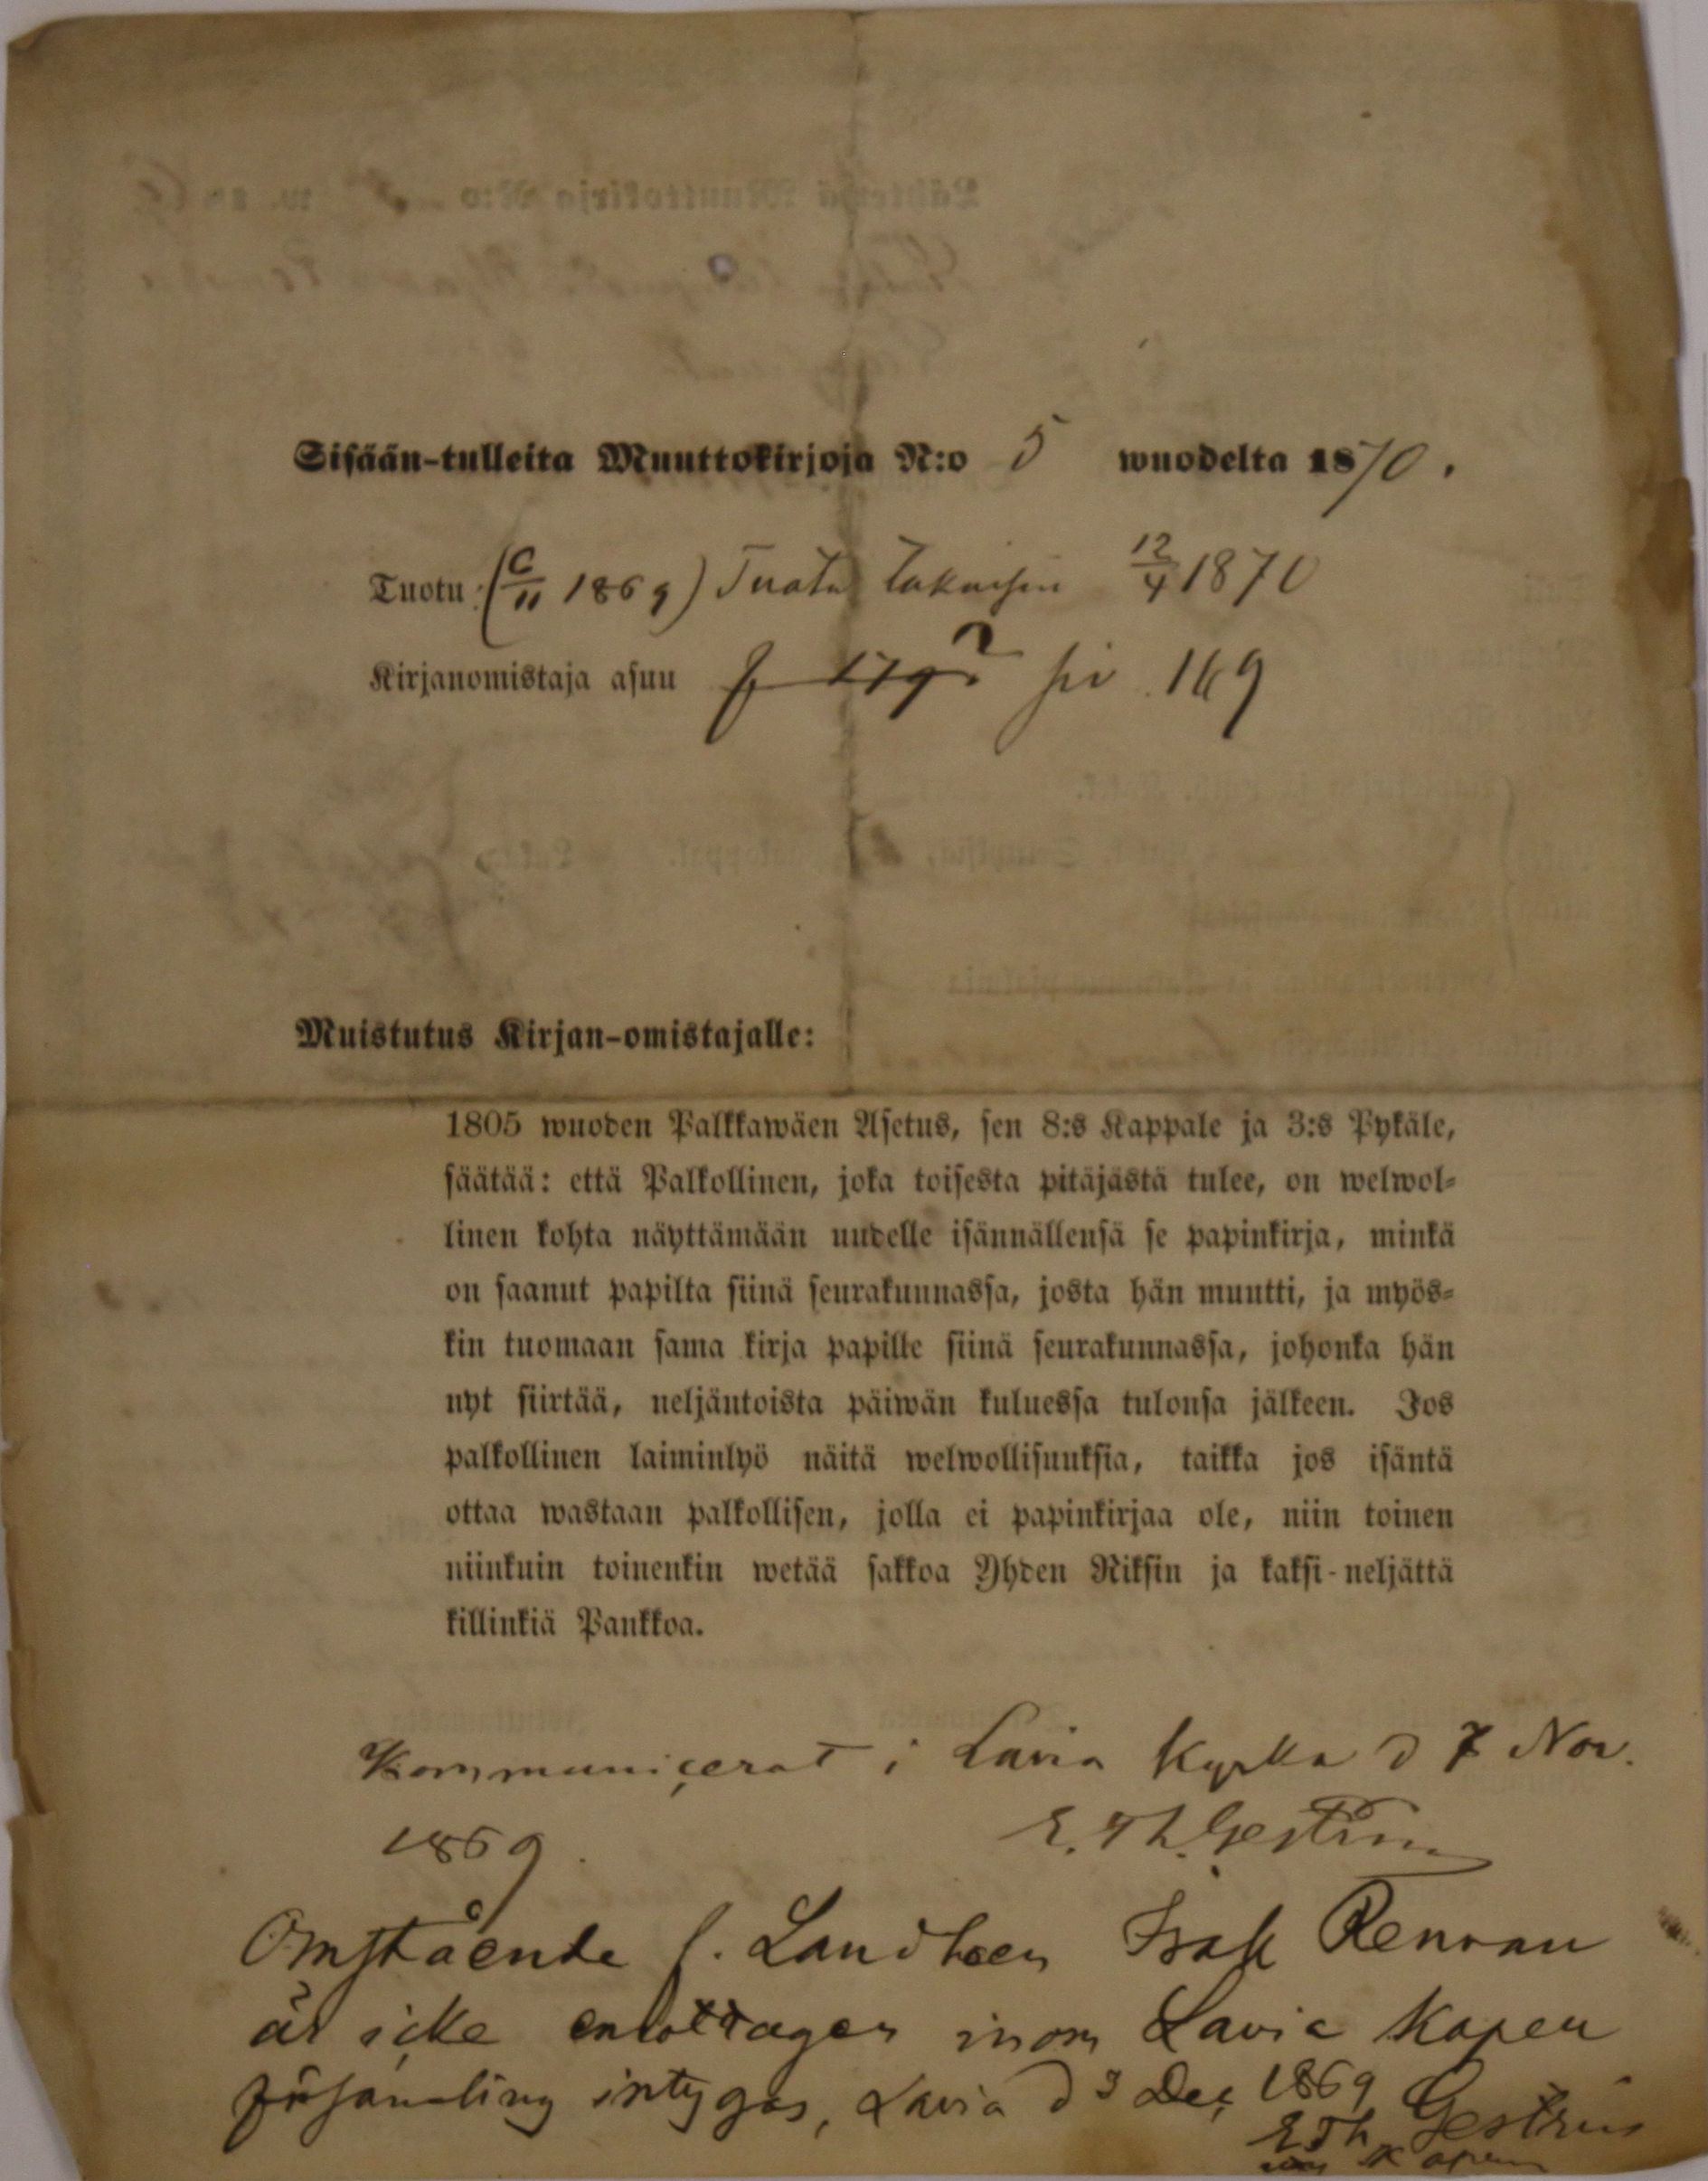 Sisään-tulleita Muuttokirjoja N:o 5 wuodelta 1870.
Tuotu: (6/11 1869) Tuotu takaisin 12/4 1870
Kirjanomistaja asuu siv. 169
Muistutus Kirjan-omistajalle:
1805 wuoden Palkkawäen Asetus, sen 8:s Kappale ja 3:s Pykäle,
säätää: että Palkollinen, joka toisesta pitäjästä tulee, on welwol-
linen kohta näyttämään uudelle isännällensä se papinkirja, minkä
on saanut papilta siinä seurakunnassa, josta hän muutti, ja myös-
kin tuomaan sama kirja papille siinä seurakunnassa, johonka hän
nyt siirtää, neljäntoista päiwän kuluessa tulonsa jälkeen. Jos
palkollinen laiminlyö näitä welwollisuuksia, taikka jos isäntä
ottaa wastaan palkollisen, jolla ei papinkirjaa ole, niin toinen
niinkuin toinenkin wetää sakkoa Yhden Riksin ja kaksi-neljättä
killinkiä Pankkoa.
Kommunicerat i Lavia Kyrka d 7 Nov.
1869. E. Th. Gestrin
Omstående f. Landboen Isak Renvan
är icke emottagen inom Lavia Kapell
församling intygas, Lavia d 3 Dec 1869
E Th Gestrin